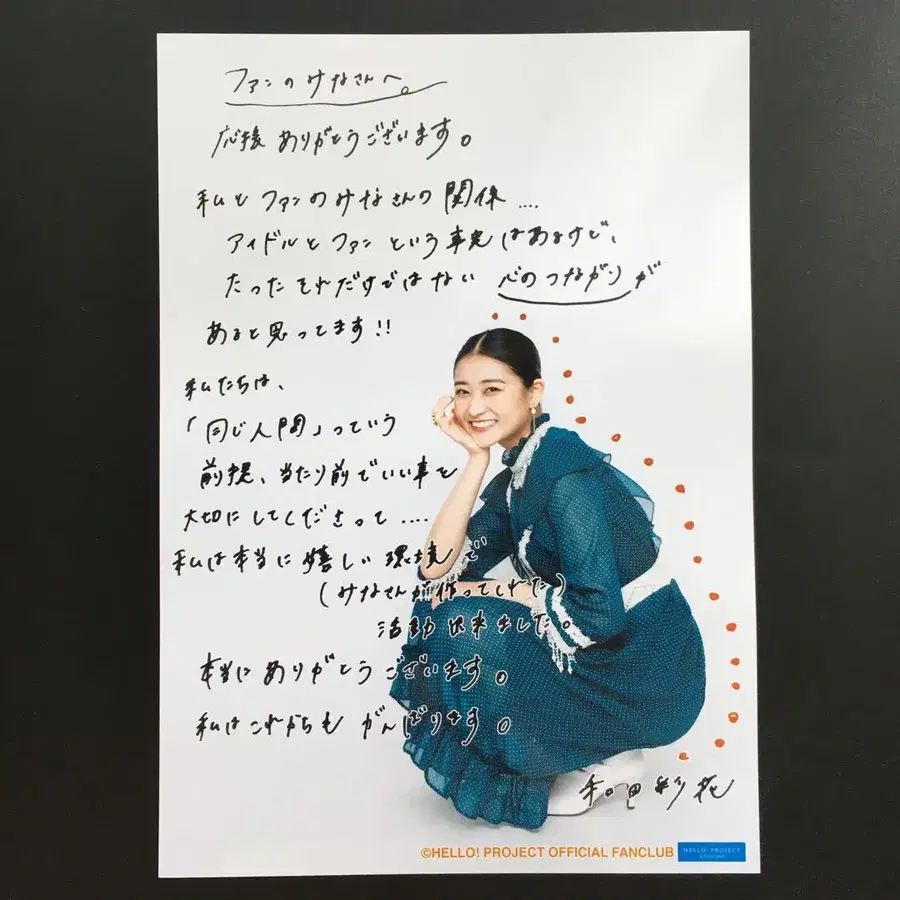 ファンのみなさんへ。
応援ありがとうございます。
私とファンのみなさんの関係....
アイドルとファンという事実はあるけど、
たったそれだけではない 心のつながりが
あると思ってます!!
私たちは、
「同じ人間」っていう
前提、当たり前でいい事を
大切にしてくださって....
私は本当に嬉しい環境で
(みなさんが作ってくれた)
活動出来ました。
本当にありがとうございます。
私はこれからも がんばります。
和田彩花
©HELLO! PROJECT OFFICIAL FANCLUB
HELLO! PROJECT